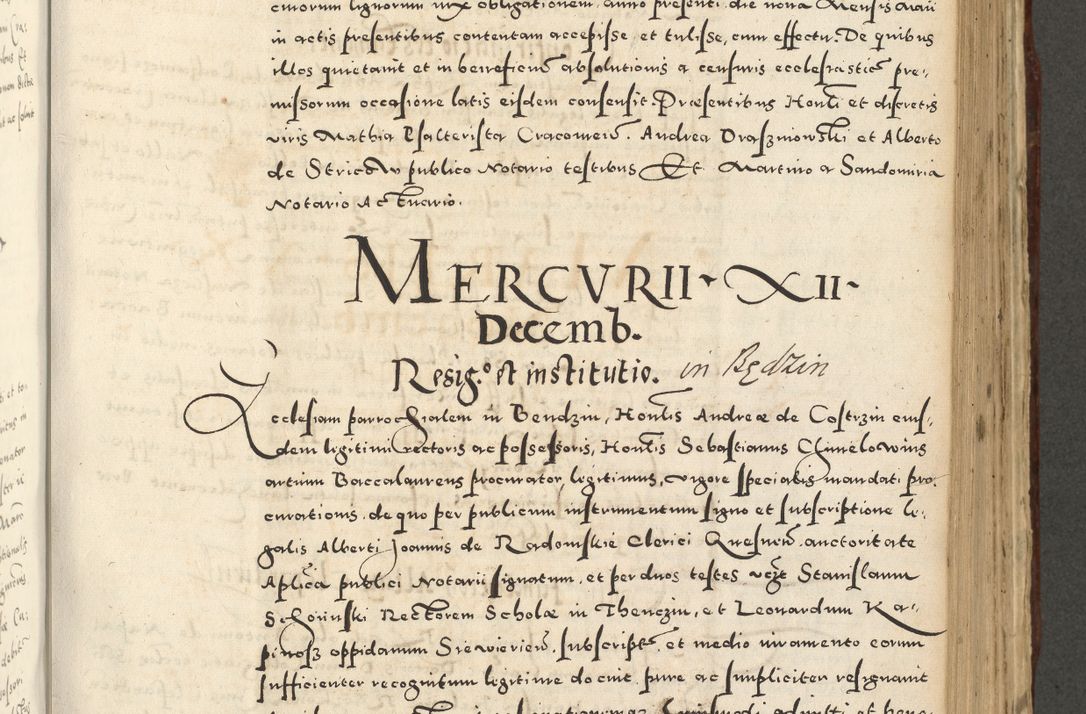 emorum lignorum mx obligationem, anno presenti, die nona Mensis Maii
in actis presentibus contentam accepisse, et tulisse, cum effectu. De quibus
illos quietavit et in beneficiu absolutionis a censuris ecclesiasticis pre-
missorum occasione latis eisdem consensit. Præsentibus Honli et discretis
viris Mathia Psalterista Cracovien. Andrea Drasznowski et Alberto
de Stricow publico Notario testibus Et Martino a Sandomiria
Notario Actuario.
MERCVRII XII
Decemb.
Resig.o et institutio. in Będzin
Ecclesiam parrochialem in Bendzin, Honlis Andreæ de Costrzin eius-
dem legitimi Rectoris ac possessoris, Honlis Sebastianus Chmelowius
artium Baccalaureus procurator, legitimus, vigore specialis mandati pro-
curationis, de quo per publicum instrumentum signo et subscriptione le-
galis Alberti Joannis de Radomskie Clerici Gnesnen. auctoritate
Aplica publici Notarii signatum, et per duos testes vczt Stanislaum
Rectorem Scholæ in Thenczin, et Leonardum Ka-
pinosz oppidanum Siewierien. subscript, et medio iuramento eorum
sufficienter recognitum legitime docuit, pure ac simpliciter resignavit